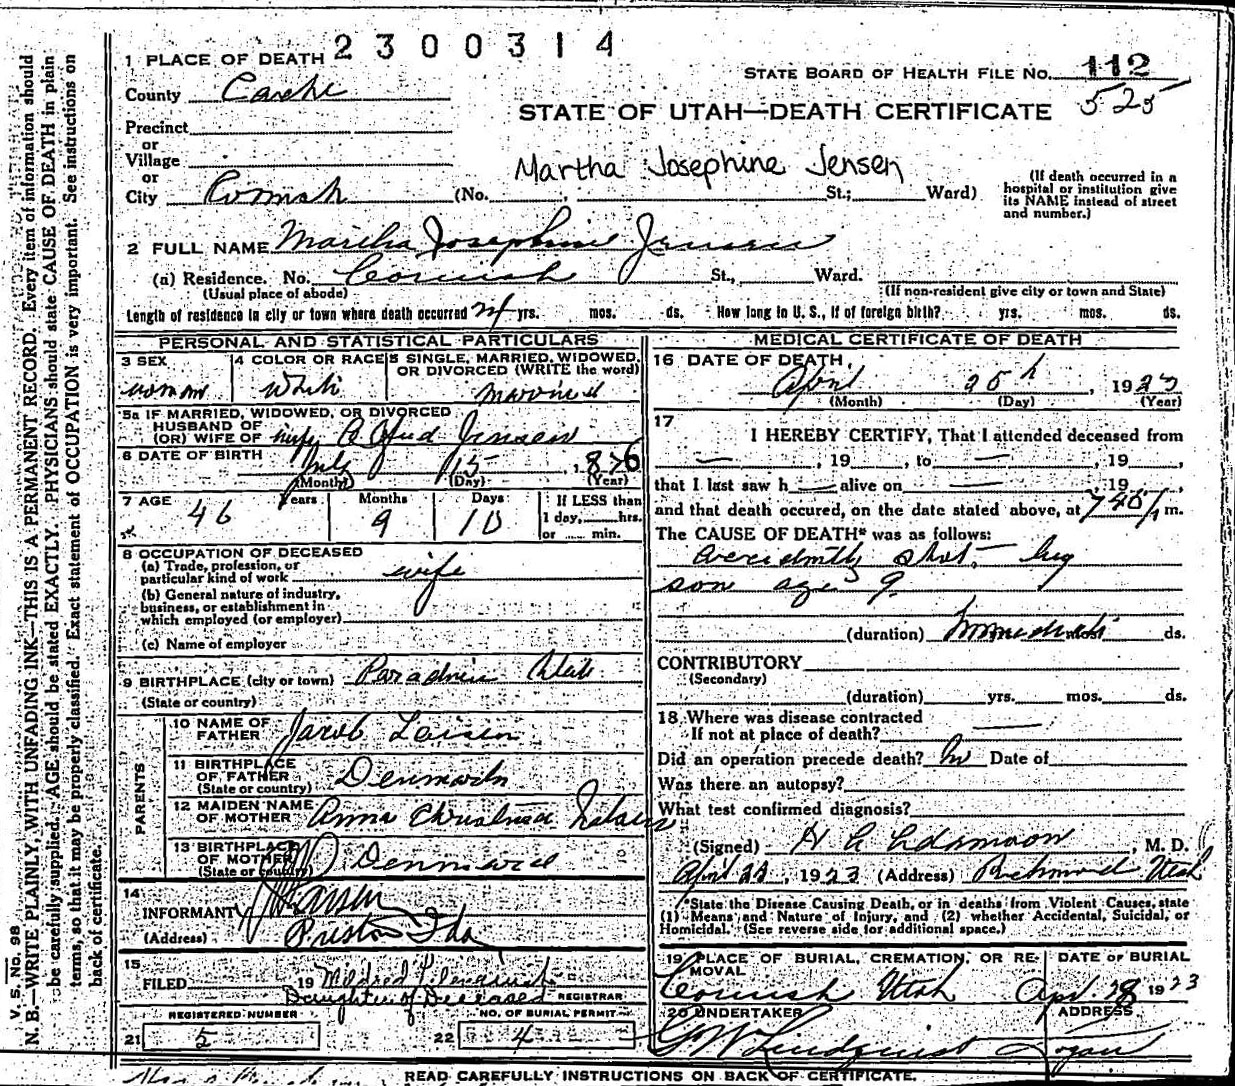 2300314
1 PLACE OF DEATH
STATE BOARD OF HEALTH FILE No. 112
525
County Cache
STATE OF UTAH—DEATH CERTIFICATE
Precinct
or
Village
or
Martha Josephine Jensen
City Cornish (No. , St.; Ward)
(If death occurred in a
hospital or institution give
its NAME instead of street
and number.)
2 FULL NAME Martha Josephine Jensen
(a) Residence. No. Cornish St., Ward.
(Usual place of abode)
(If non-resident give city or town and State)
Length of residence in city or town where death occurred yrs. mos. ds. How long in U. S., if of foreign birth? yrs. mos. ds.
PERSONAL AND STATISTICAL PARTICULARS
3 SEX
woman
4 COLOR OR RACE
White
5 SINGLE, MARRIED, WIDOWED,
OR DIVORCED (WRITE the word)
married
5a IF MARRIED, WIDOWED, OR DIVORCED
HUSBAND OF
(OR) WIFE OF Jensen
6 DATE OF BIRTH
July 15, 1876
(Month) (Day) (Year)
7 AGE
Years Months Days
46 9 10
If LESS than
1 day, hrs.
or min.
8 OCCUPATION OF DECEASED
(a) Trade, profession, or
particular kind of work wife
(b) General nature of industry,
business, or establishment in
which employed (or employer)
(c) Name of employer
9 BIRTHPLACE (city or town) Paradise Utah
(State or country)
PARENTS
10 NAME OF
FATHER Jacob Larsen
11 BIRTHPLACE
OF FATHER
(State or country) Denmark
12 MAIDEN NAME
OF MOTHER Anna Christina
13 BIRTHPLACE
OF MOTHER
(State or country) Denmark
14
INFORMANT Larsen
(Address) Preston Ida
15
FILED 19 Mildred
Daughter of Deceased REGISTRAR
REGISTERED NUMBER
21 5
NO. OF BURIAL PERMIT
22 4
MEDICAL CERTIFICATE OF DEATH
16 DATE OF DEATH
April 25th, 1923
(Month) (Day) (Year)
17
I HEREBY CERTIFY, That I attended deceased from
— , 19 , to — , 19 ,
that I last saw h — alive on — , 19 ,
and that death occured, on the date stated above, at m.
The CAUSE OF DEATH* was as follows:
accidently shot by
son age 9
(duration) Immediate ds.
CONTRIBUTORY
(Secondary)
(duration) yrs. mos. ds.
18 Where was disease contracted
If not at place of death? —
Did an operation precede death? No Date of
Was there an autopsy?
What test confirmed diagnosis?
(Signed) Adamson, M. D.
April, 1923 (Address) Richmond Utah
*State the Disease Causing Death, or in deaths from Violent Causes, state
(1) Means and Nature of Injury, and (2) whether Accidental, Suicidal, or
Homicidal. (See reverse side for additional space.)
19 PLACE OF BURIAL, CREMATION, OR RE-
MOVAL
Cornish Utah
DATE OF BURIAL
Apr 28 1923
20 UNDERTAKER
G W Lindquist
ADDRESS
Logan
READ CAREFULLY INSTRUCTIONS ON BACK OF CERTIFICATE.
V. S. No. 98
N. B.—WRITE PLAINLY, WITH UNFADING INK—THIS IS A PERMANENT RECORD. Every item of information should
be carefully supplied. AGE should be stated EXACTLY. PHYSICIANS should state CAUSE OF DEATH in plain
terms, so that it may be properly classified. Exact statement of OCCUPATION is very important. See instructions on
back of certificate.